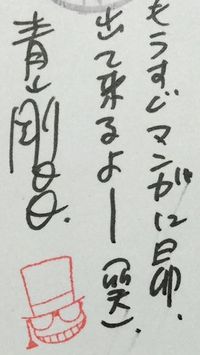 もうすぐマンガに昴、
出て来るよー(笑).
青山剛昌.